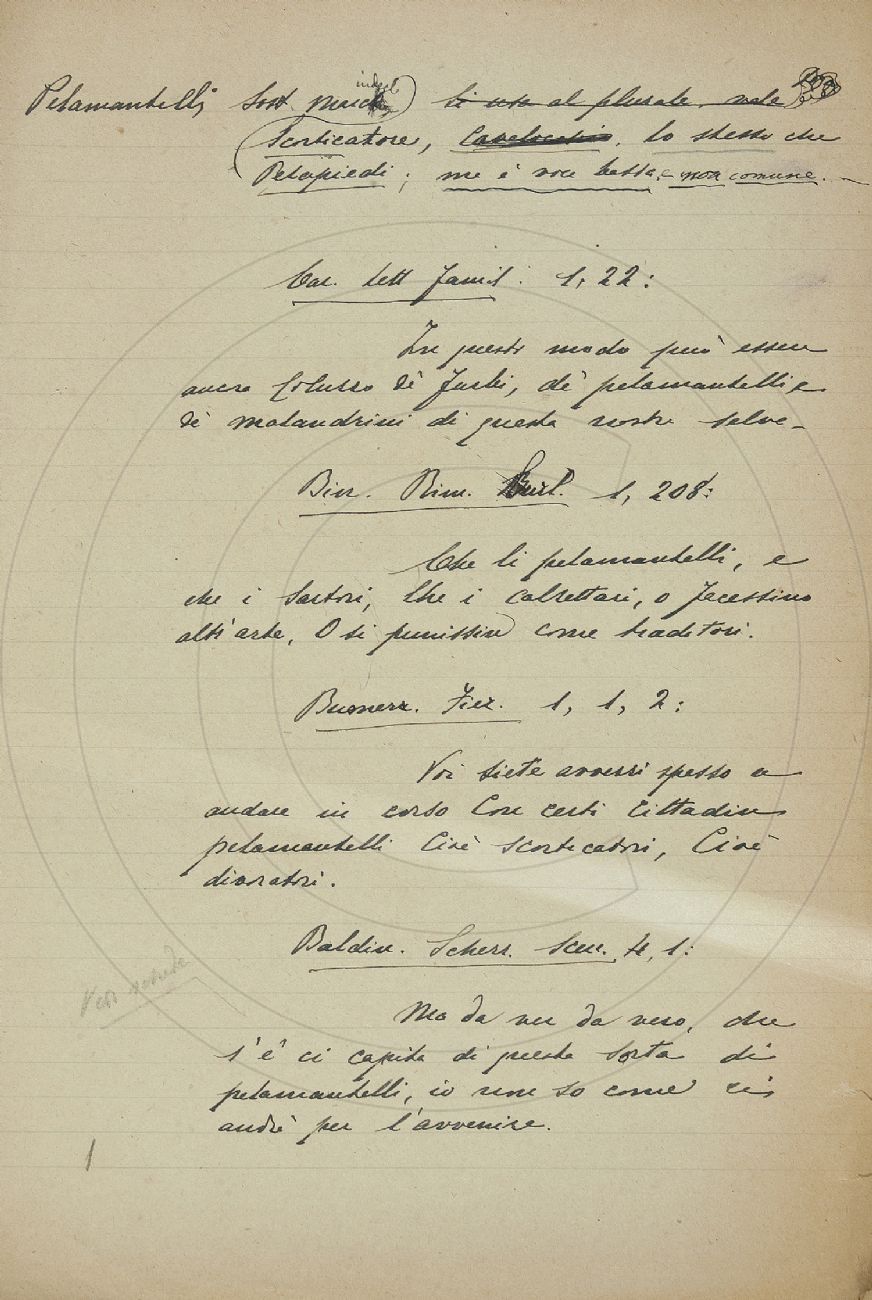 Pelamantelli, Sost. masch. indecl. si usa al plurale, vale
Scorticatore, lo stesso che
Pelapiedi; ma è voce bassa, e non comune.
Car. Lett. Famil. 1, 22:
In questo modo può essere
ancora Colusso de' Furbi, de' pelamantelli, e
de' malandrini di questa nostra selva.
Bin. Rim. Burl. 1, 208:
Che li pelamantelli, e
che i Sartori, Che i calzettari, o facessino
altr'arte, O si punissin come traditori.
Buonarr. Fier. 1, 1, 2:
Voi siete avvezzi spesso a
andare in corso Con certi Cittadin
pelamantelli Cioè scorticatori, Cioè
divoratori.
Baldin. Scherz. Scen. 4, 1:
Vedi scheda
Ma da ver da vero, che
s'e' ci capita di questa sorta di
pelamantelli, io non so come ci
andrè per l'avvenire.
1